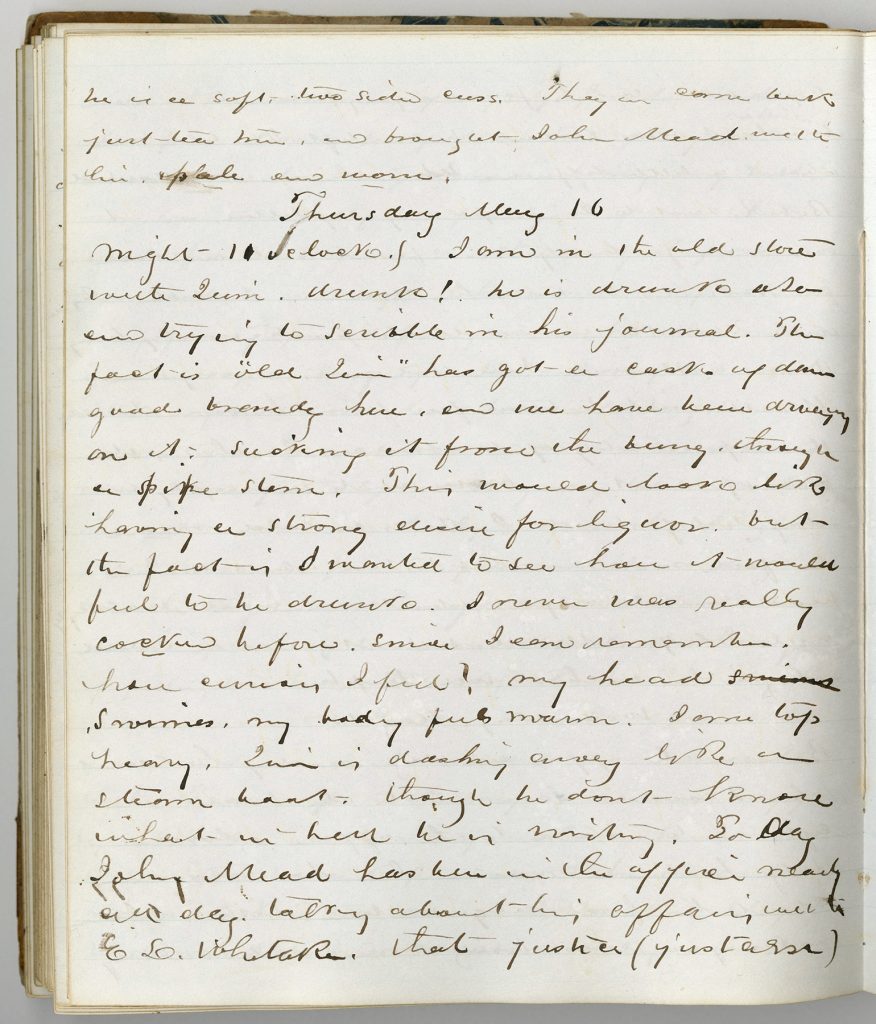 he is a soft, two sided cuss. They all come back
just tea time, and brought John Mead with
him. pale and worn.
Thursday May 16
Night 11 Oclock.} I am in the old store
with Quin. drunk! he is drunk also
and trying to scribble in his journal. The
fact is "old Quin" has got a cask of damn
good brandy here, and we have been drawing
on it; sucking it from the bung, through
a pipe stem. This would look like
having a strong desire for liquor. but
the fact is I wanted to see how it would
feel to be drunk. I never was really
cocked before. since I can remember.
how curious I feel! my head swims
Swimes, my body feels warm. I am top
heavy, Quin is dashing away like a
steam boat. though he dont know
what in hell he is writing. To day
John Mead has been in the office nearly
all day talking about his affairs with
E L. Whitaker. that justice (justass)